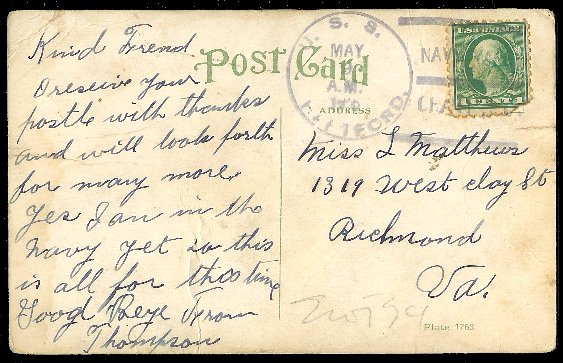 Kind Frend
I receive your
postle with thanks
and will look forth
for many more
Yes I am in the
Navy yet so this
is all for this time
Good Beye From
Thompson
Post Card
ADDRESS
U. S. S.
MAY
A.M.
HARTFORD.
NAVY
U.S. POSTAGE
1 CENT 1
Miss L Matthews
1319 West Clay St
Richmond
Va.
Plate 1763